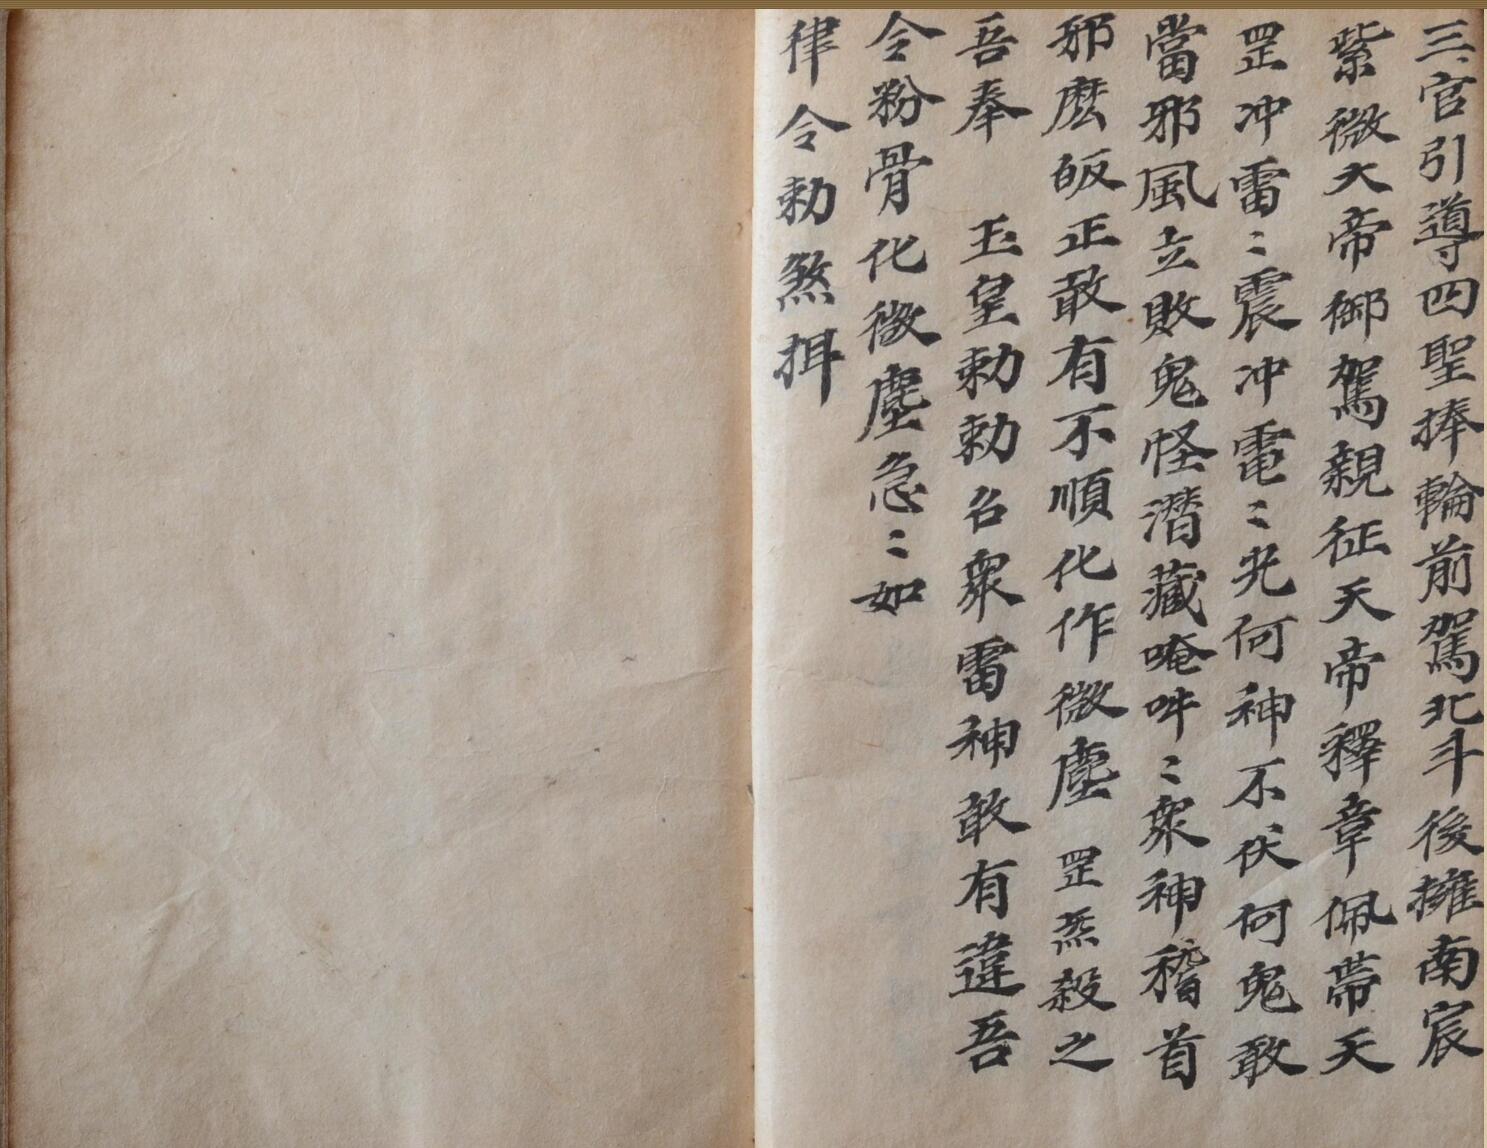 三官引導四聖捧輪前駕北斗後擁南宸
紫微大帝御駕親征天帝釋章佩帶天
罡冲雷〻震冲電〻光何神不伏何鬼敢
當邪風立敗鬼怪潛藏唵吽〻衆神稽首
邪麽皈正敢有不順化作微塵 罡炁殺之
吾奉 玉皇勅勅名衆雷神敢有違吾
令粉骨化微塵急〻如
律令勅煞揖